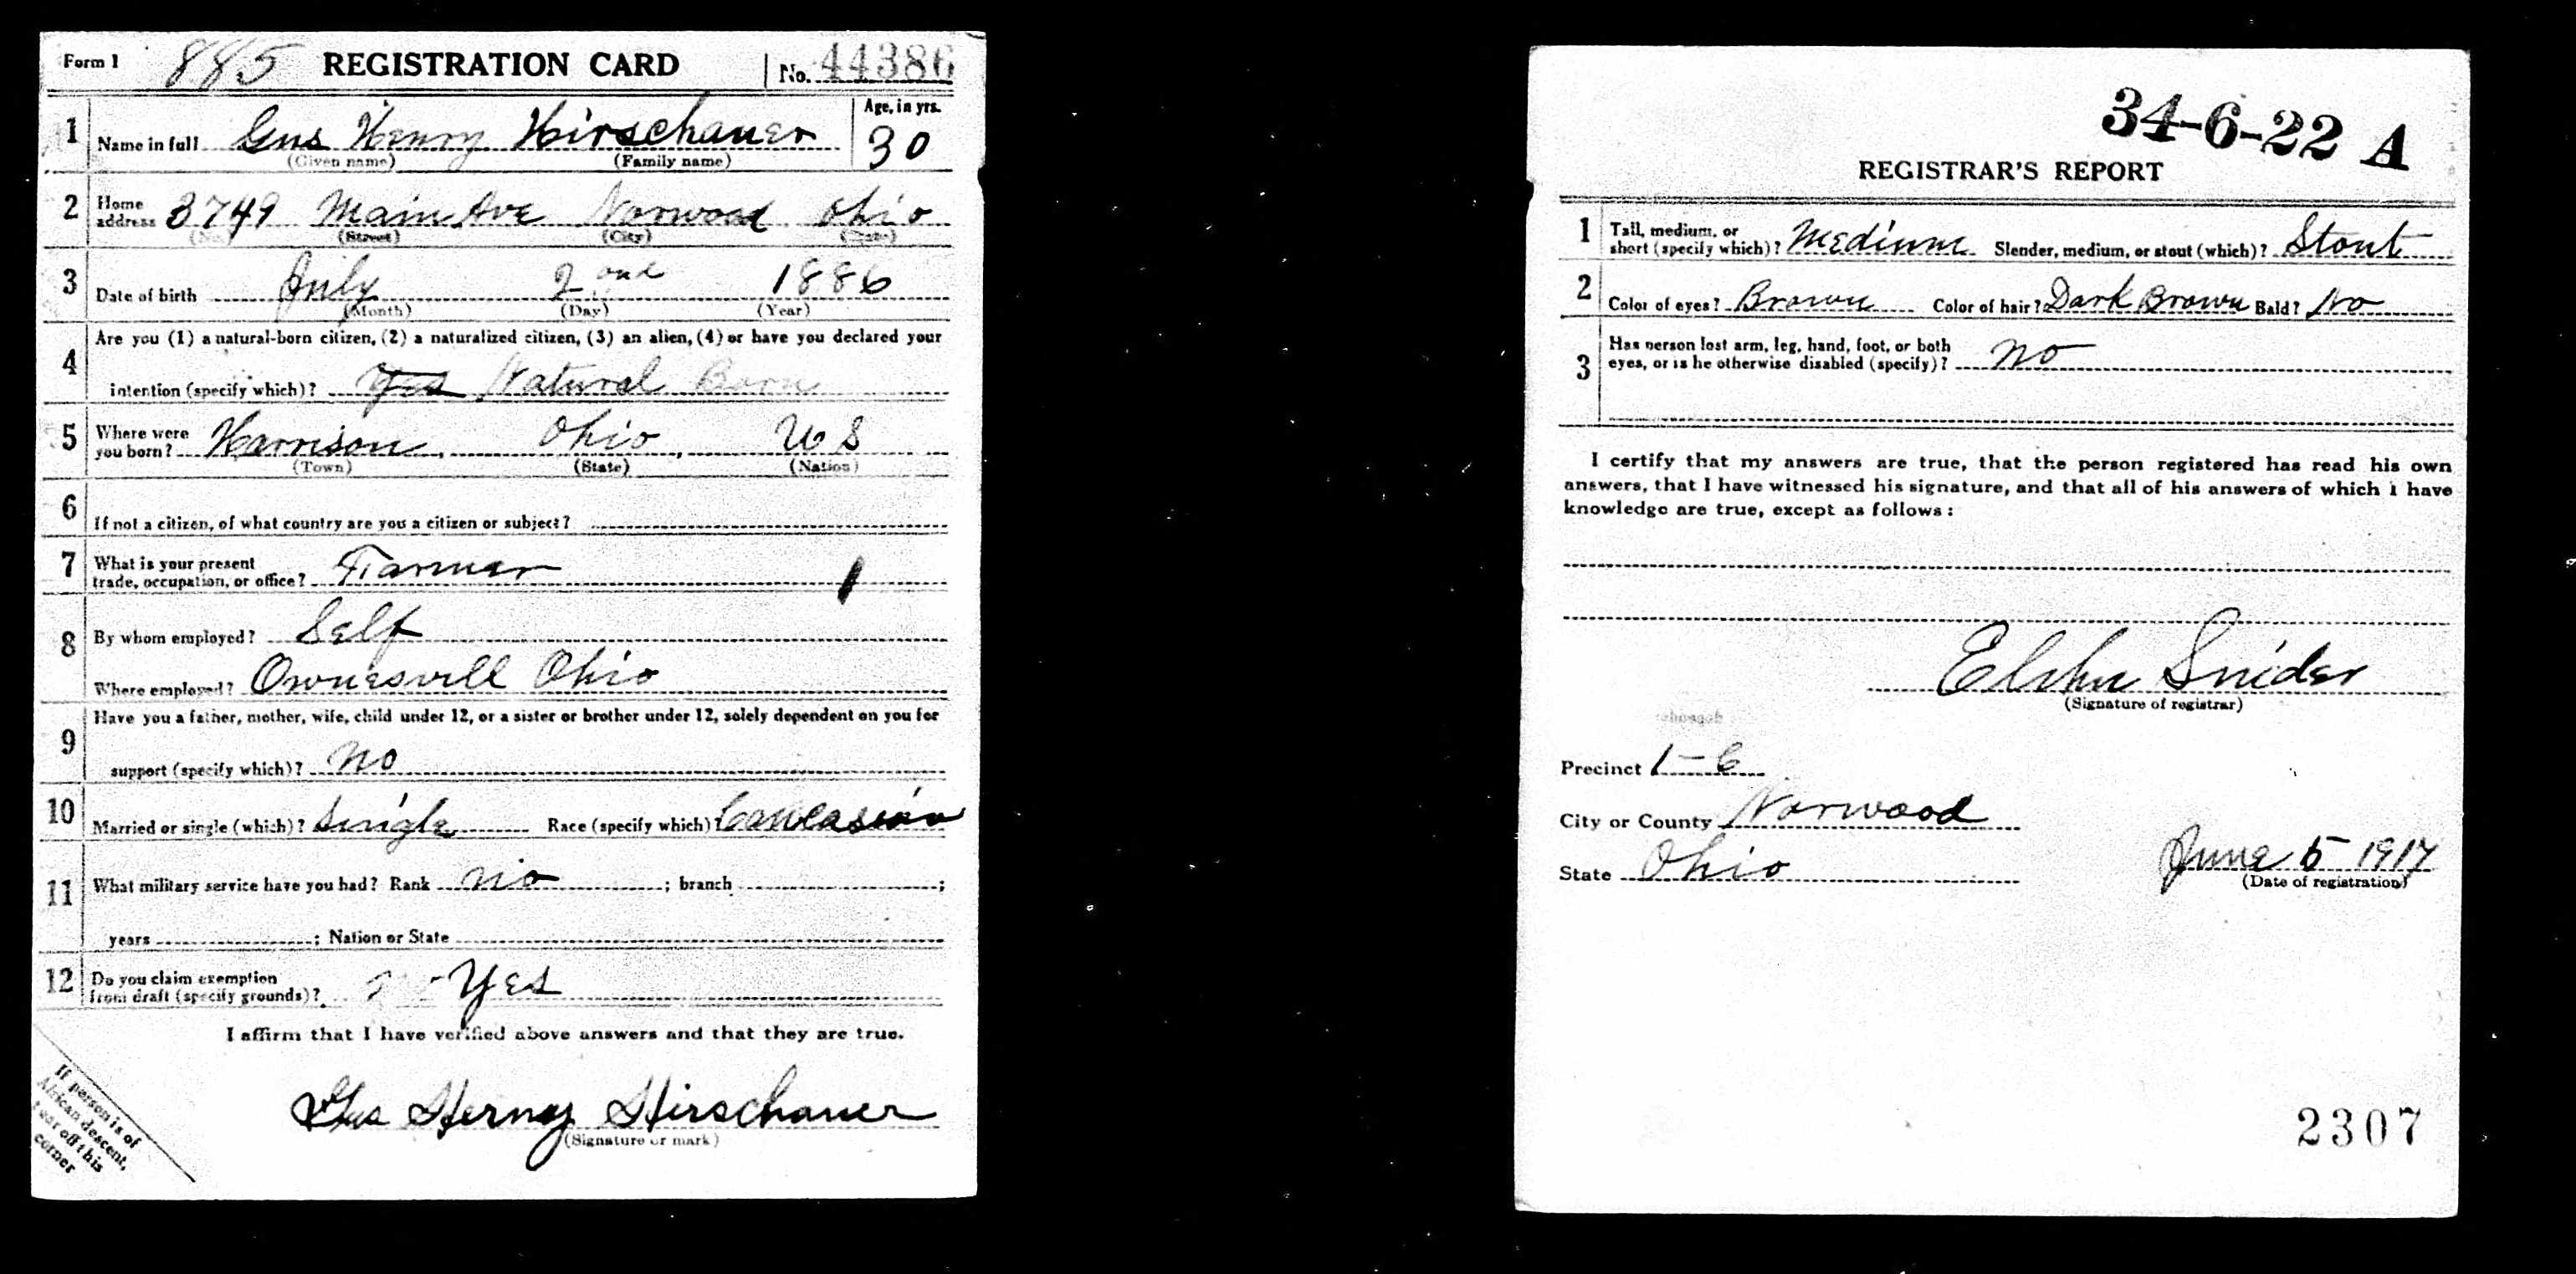 Form 1 885 REGISTRATION CARD No. 44386
1 Name in full Gus Henry Hirschauer Age, in yrs. 30
(Given name) (Family name)
2 Home address 3749 Main Ave Norwood Ohio
(No.) (Street) (City) (State)
3 Date of birth July 2ond 1886
(Month) (Day) (Year)
4 Are you (1) a natural-born citizen, (2) a naturalized citizen, (3) an alien, (4) or have you declared your
intention (specify which)? Yes Natural Born
5 Where were you born? Harrison, Ohio, U S
(Town) (State) (Nation)
6 If not a citizen, of what country are you a citizen or subject?
7 What is your present
trade, occupation, or office? Farmer 1
8 By whom employed? Self
Where employed? Ownesvill Ohio
9 Have you a father, mother, wife, child under 12, or a sister or brother under 12, solely dependent on you for
support (specify which)? No
10 Married or single (which)? Single Race (specify which)? Caucasian
11 What military service have you had? Rank no ; branch ;
years ; Nation or State
12 Do you claim exemption
from draft (specify grounds)? Yes
I affirm that I have verified above answers and that they are true.
Gus Herney Hirschauer
(Signature or mark)
If person is of
African descent,
tear off this
corner
34-6-22 A
REGISTRAR'S REPORT
1 Tall, medium, or
short (specify which)? Medium Slender, medium, or stout (which)? Stout
2 Color of eyes? Brown Color of hair? Dark Brown Bald? No
3 Has person lost arm, leg, hand, foot, or both
eyes, or is he otherwise disabled (specify)? no
I certify that my answers are true, that the person registered has read his own
answers, that I have witnessed his signature, and that all of his answers of which I have
knowledge are true, except as follows:
Elihu Snider
(Signature of registrar)
Precinct 1-C
City or County Norwood
State Ohio June 5 1917
(Date of registration)
2307